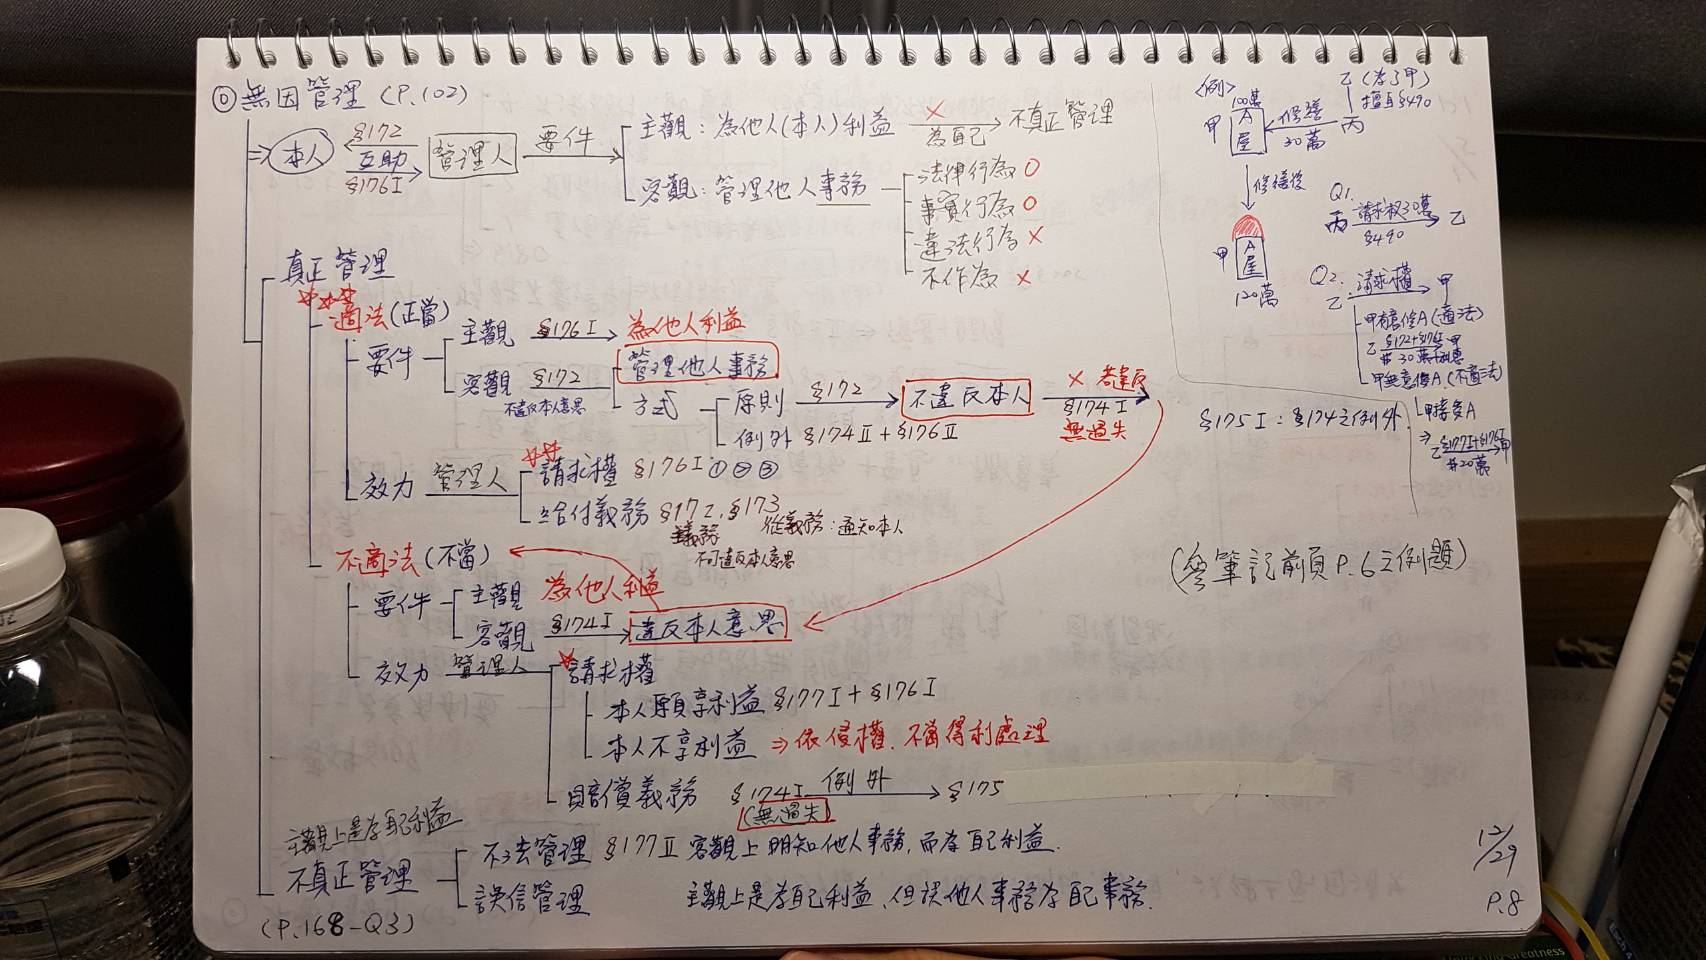 ① 無因管理 (P.102)
⇒ 本人 §172 互助 §176I 管理人 要件
主觀：為他人(本人)利益 × 為自己 不真正管理
客觀：管理他人事務
法律行為 ○
事實行為 ○
違法行為 ×
不作為 ×
真正管理
適法(正當)
要件
主觀 §176I 為他人利益
客觀 §172 不違反本人意思
管理他人事務
方式
原則 §172 不違反本人 × 若違反 §174I 無過失
例外 §174II+§176II
效力 管理人
請求權 §176I ①②③
給付義務 §172、§173
主義務 從義務：通知本人
不可違反本人意思
不適法(不當)
要件
主觀 為他人利益
客觀 §174I 違反本人意思
效力 管理人
請求權
本人願享利益 §177I+§176I
本人不享利益 ⇒依侵權、不當得利處理
賠償義務 §174I (無過失) 例外 §175
主觀上是為自己利益
不真正管理
不法管理 §177II 客觀上明知他人事務，而為自己利益.
誤信管理 主觀上是為自己利益、但誤他人事務為自己事務.
(P.168-Q3)
<例>
100萬
甲 A屋 修繕 30萬 丙
乙(為了甲)
擅自§490
修繕後
甲 A屋
120萬
Q1.
丙 請求權30萬 §490 乙
Q2.
乙 請求權 甲
甲有意修A(適法)
乙 §172+§176I 甲
甲無意修A.(不適法)
甲接受A
⇒乙 §177I+§176I 甲
#20萬
§175I：§174之例外.
(參筆記前頁P.6之例題)
12/29
P.8